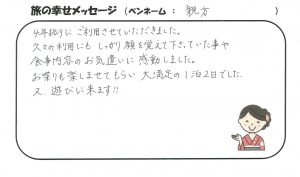 旅の幸せメッセージ (ペンネーム : 親方 )
4年振りに ご利用させていただきました。
久々の利用にも しっかり顔を覚えて下さっていた事や
食事内容のお気遣いに 感動しました。
お祭りも楽しませてもらい 大満足の1泊2日でした。
又、遊びに来ます!!